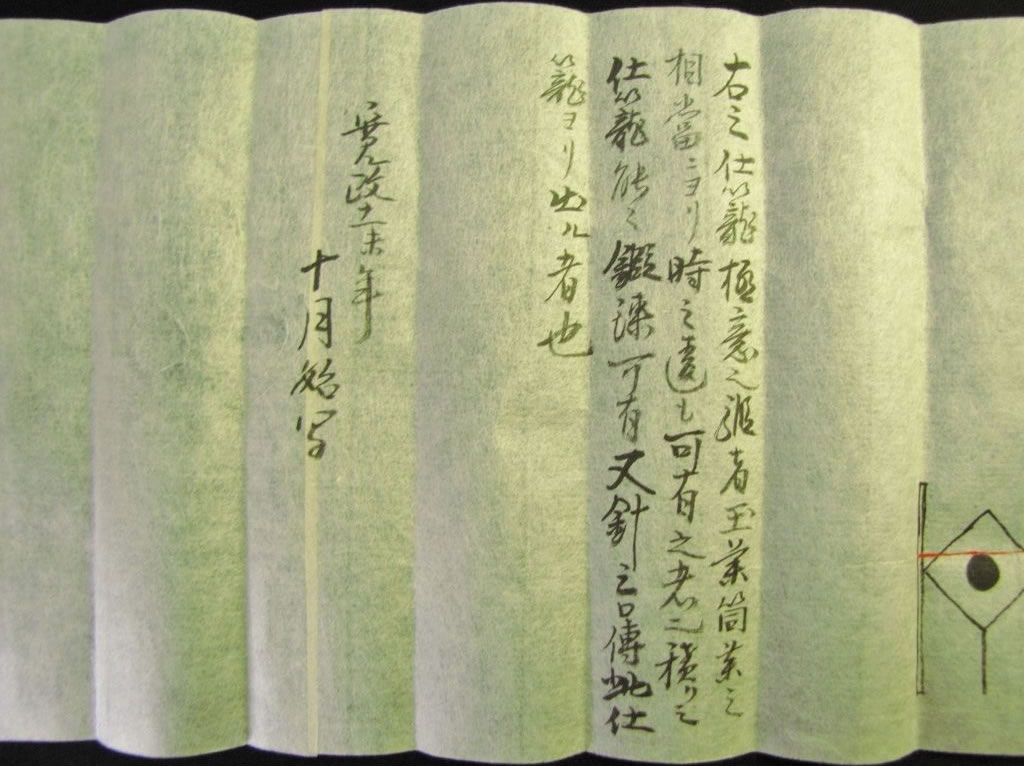 右之仕籠極意之趣者玉薬筒薬之
相當ニヨリ時之違も可有之積り之
仕籠能々鍛錬可有又針之口傳此仕
籠ヨリ出ル者也
寛政十一未年
十月始写